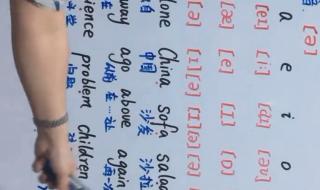 [ə]
a e i o
[eɪ] [iː] [aɪ] [əʊ]
[æ] [e] [ɪ] [ɒ]
[ə] [ɪ][ə] [ɪ][ə]
lone China sofa salad
中国 沙发 沙拉
way ago above again
以前 在...之上
ience problem children